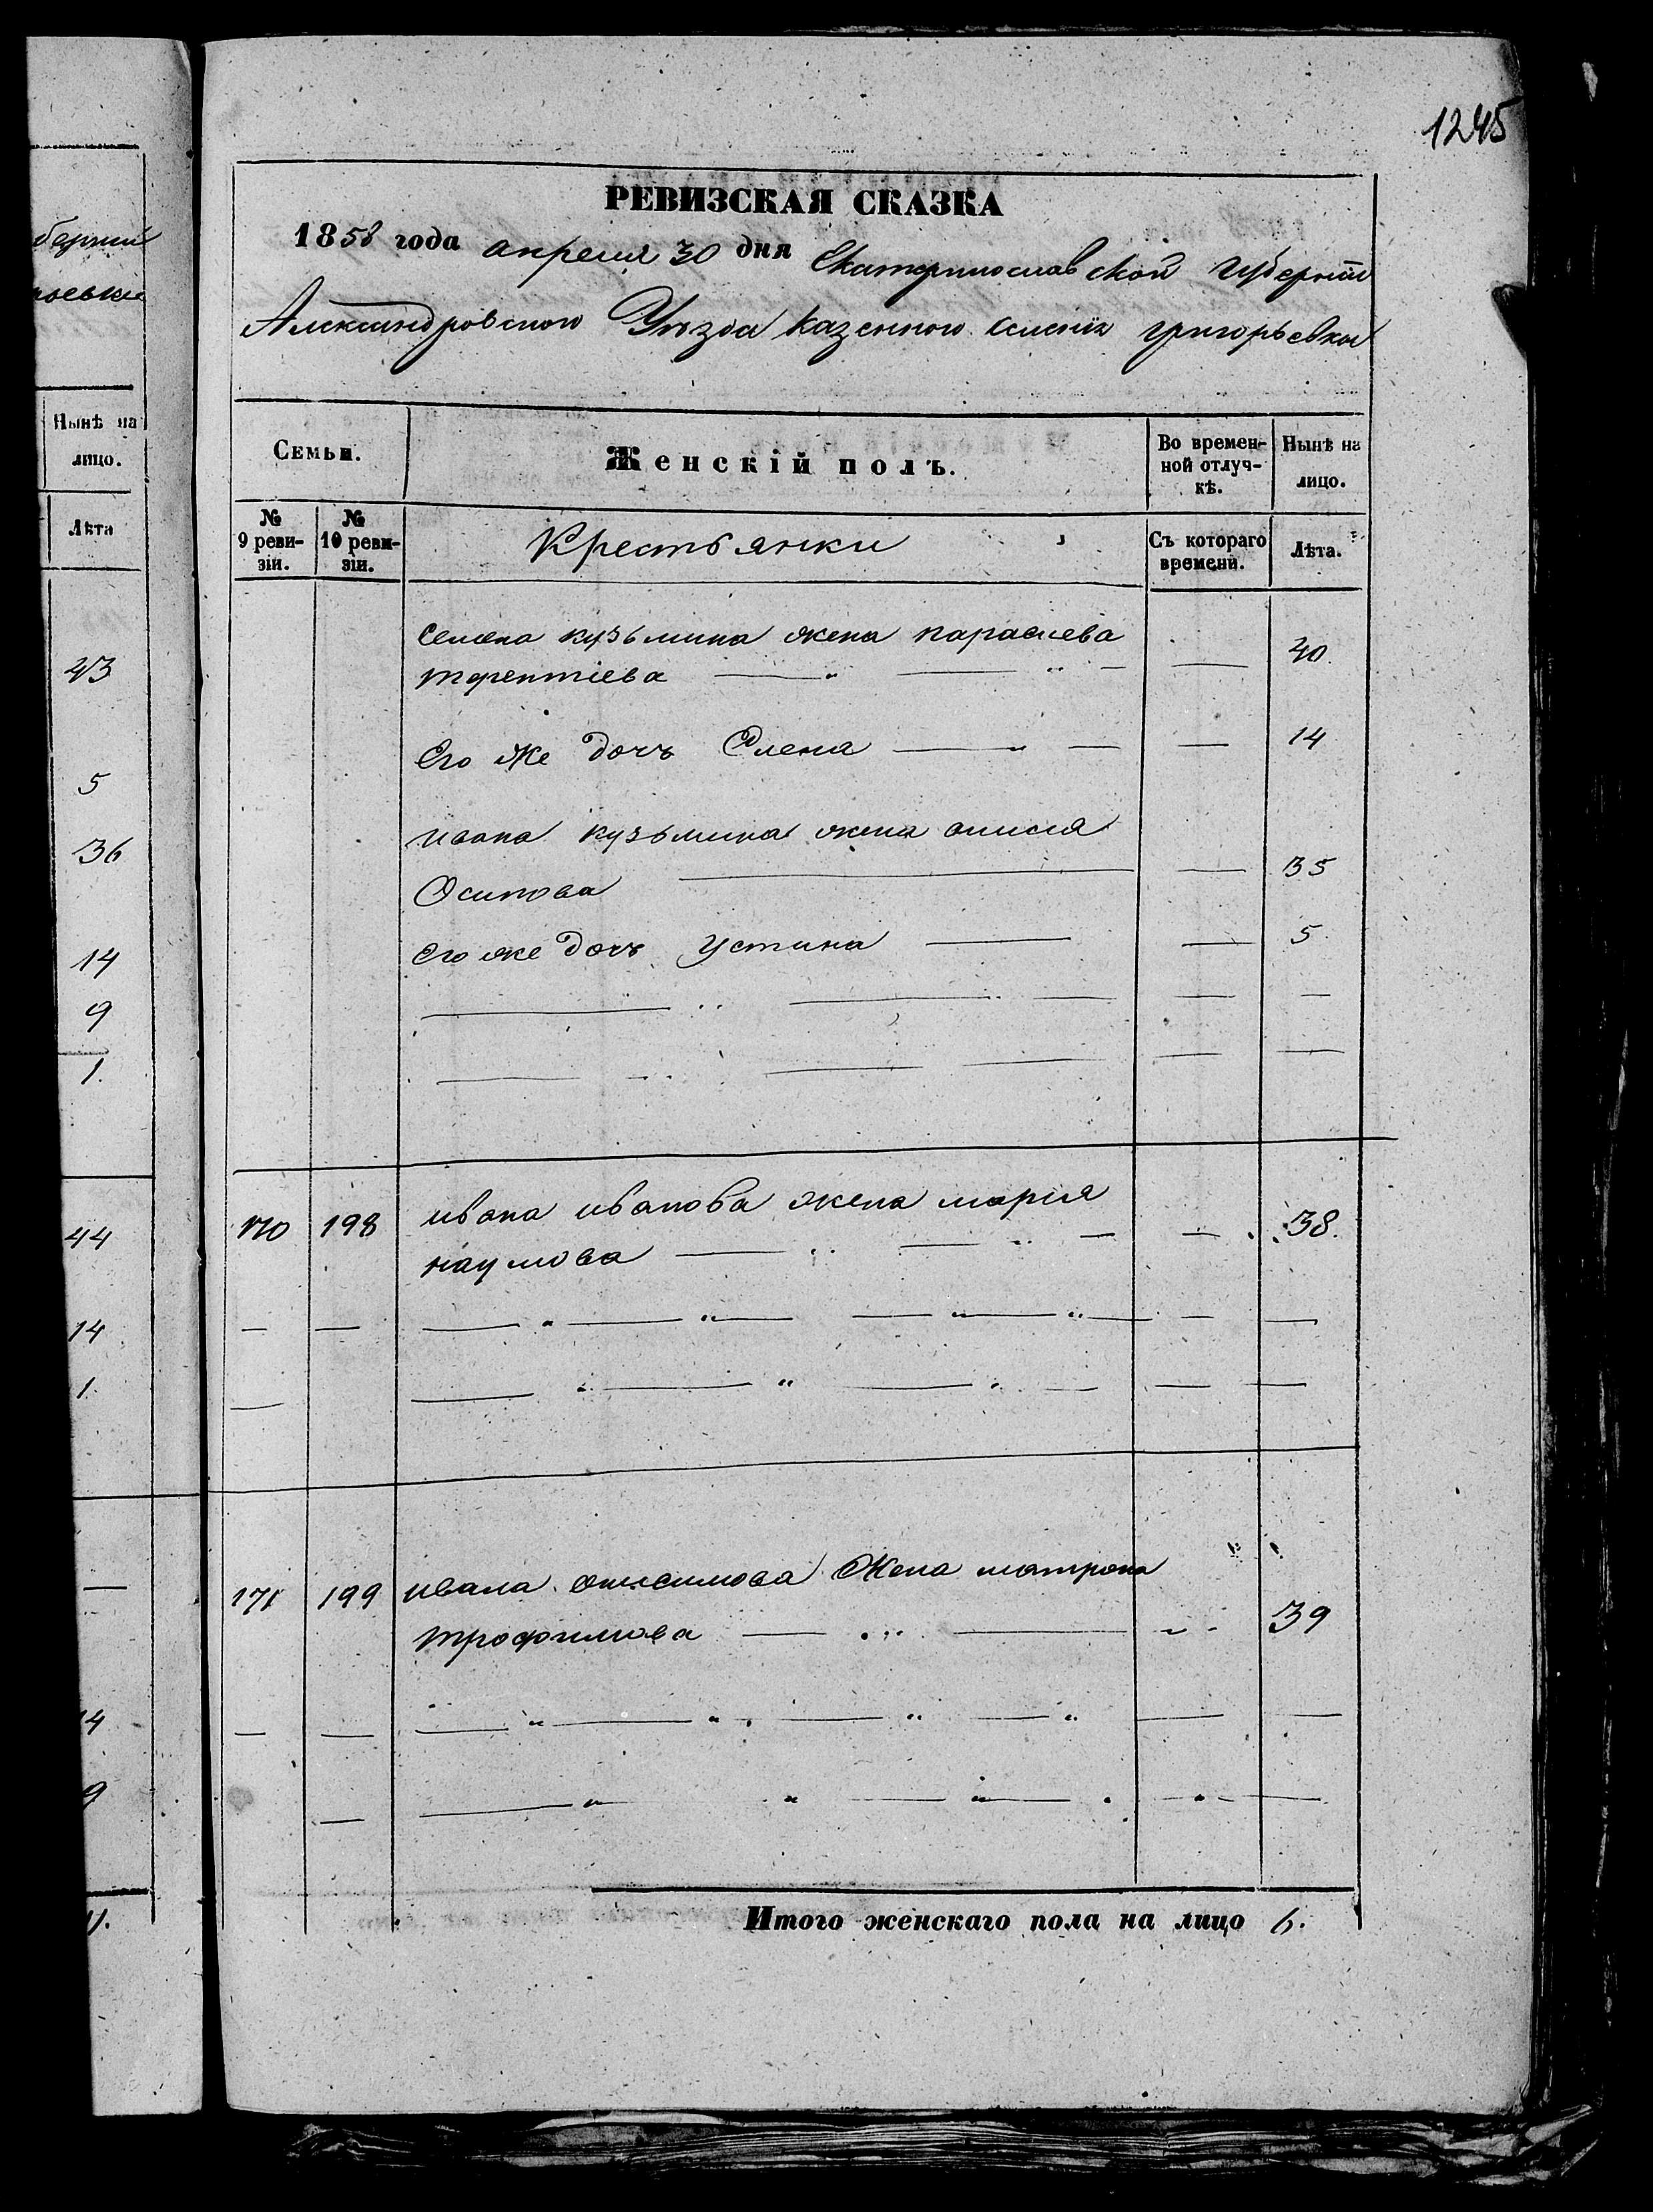 берніи
ьевки
Нынѣ на
лицо.
Лѣта
43
5
36
14
9
1.
44
14
1.
—
4
9
1245
РЕВИЗСКАЯ СКАЗКА
1858 года апреля 30 дня Екатеринославской губерніи
Александровского Уѣзда казенного селенія григорьевки
Семьи. Женскій полъ. Во времен- Нынѣ на
ной отлуч-
кѣ. лицо.
№ № Крестьянки Съ котораго Лѣта.
9 реви- 10 реви- времени.
зіи. зіи.
Семена кузьмина жена параскева
терентіева — „ — „ — — 40.
Его же дочъ Елена — „ — — 14
ивана кузьмина жена анисія
Осипова — — 35
Его же дочъ Устина — — 5.
170 198 ивана иванова жена марія
наумова — „ — „ — — 38.
171 199 ивана Жена матрона
трофимова — „ — 39
Итого женскаго пола на лицо 6.